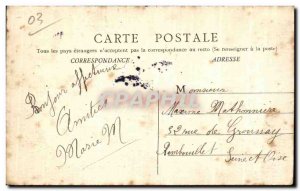 03
CARTE POSTALE
Tous les pays étrangers n'acceptent pas la correspondance au recto (Se renseigner à la poste)
CORRESPONDANCE
ADRESSE
Bonjour affectueux
Amitiés
Marie M
Monsieur
Maxime
32 rue de Groussay
Rambouillet
Seine et Oise